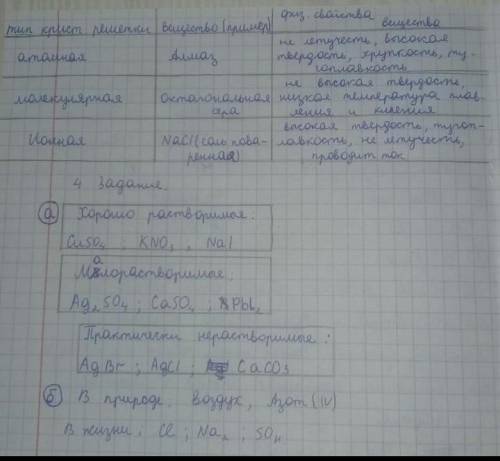 тип крист. решетки вещество (пример) физ. свойства вещество
атомная Алмаз не летучесть, высокая твердость, хрупкость, тугоплавкость
молекулярная Октагональная сера не высокая твердость, низкая температура плавления и кипения
Ионная NaCl (соль поваренная) высокая твердость, тугоплавкость, не летучесть, проводит ток
4 Задание.
а Хорошо растворимые:
CuSO4 ; KNO3 , NaI
Малорастворимые:
Ag2SO4 ; CaSO4 ; PbI2
Практически нерастворимые:
AgBr ; AgCl ; CaCO3
б В природе: Воздух, Азот (IV)
В жизни: Cl ; Na2 ; SO4